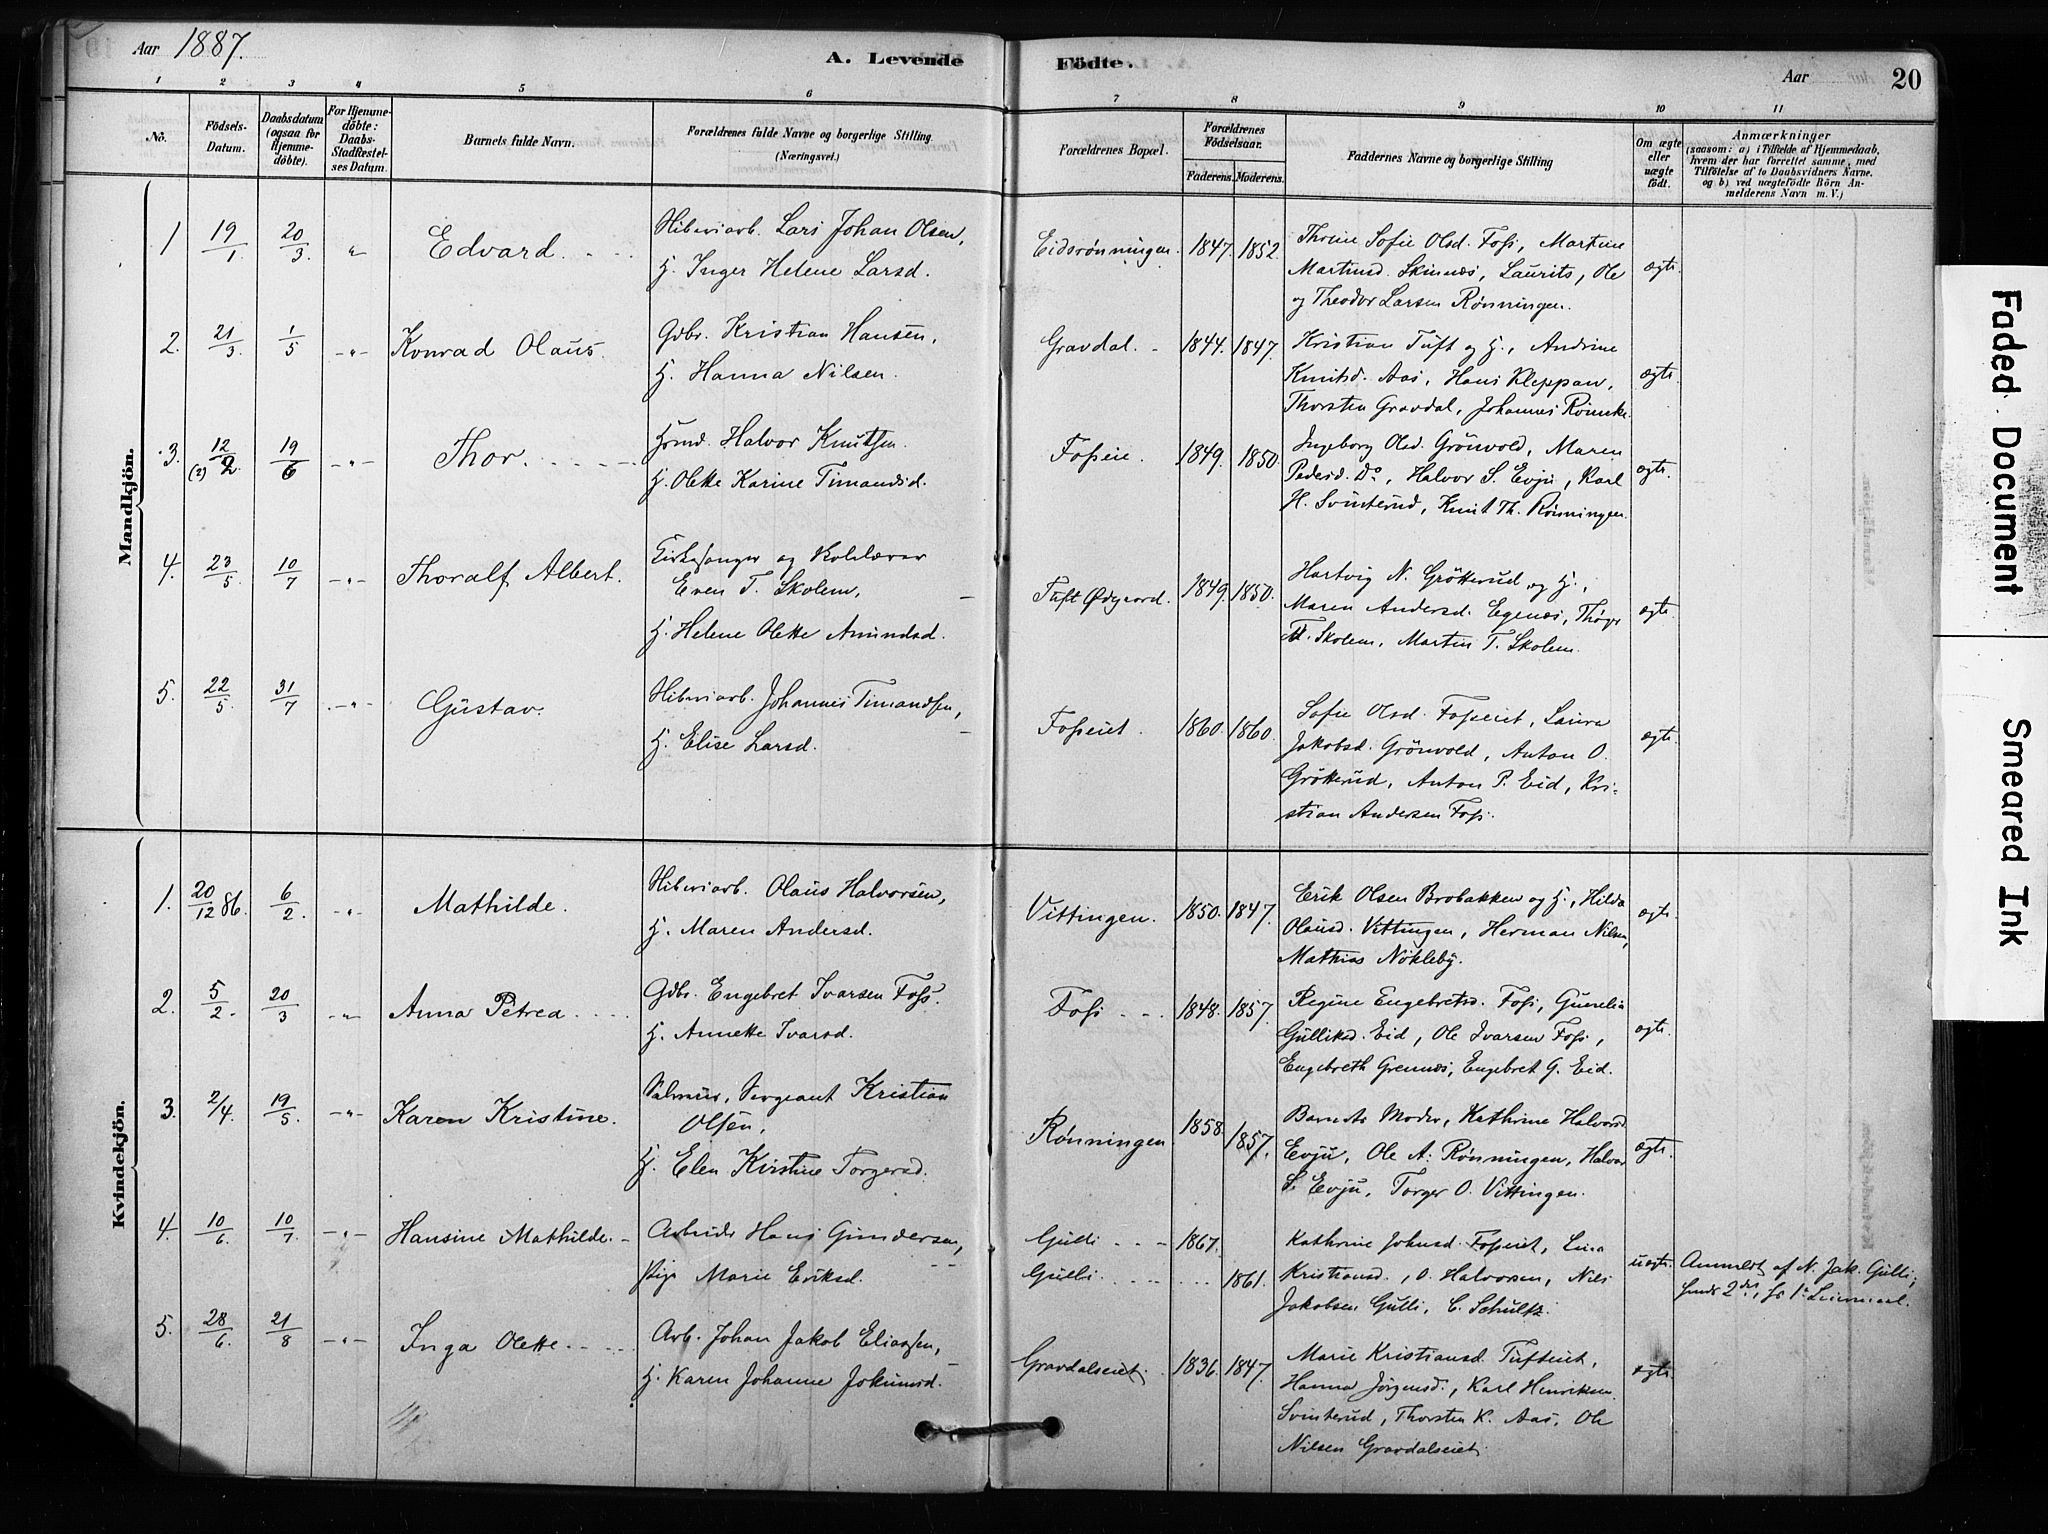 Aar 1887.
A. Levende Födte.
Aar
20
1 2 3 4 5 6 7 8 9 10 11
No.
Födsels-Datum.
Daabsdatum (ogsaa for Hjemme-döbte).
For Hjemme-döbte: Daabs-Stadfæstel-ses Datum.
Barnets fulde Navn.
Forældrenes fulde Navne og borgerlige Stilling.
(Næringsvei.)
Forældrenes Bopæl.
Forældrenes Födselsaar.
Faderens. Moderens.
Faddernes Navne og borgerlige Stilling
Om ægte eller uægte födt.
Anmærkninger
(saasom: a) i Tilfælde af Hjemmedaab, hvem der har forrettet samme, med Tilföielse af to Daabsvidners Navne, og b) ved uægtefödte Börn An-melderens Navn m. V.)
Mandkjön.
1 19/1. 20/3. " Edvard. Sliberiarb. Lars Johan Olsen,
H. Inger Helene Larsd.
Eidsrønningen. 1847. 1852. Thrine Sofie Olsd. Foss, Martine
Martinsd. Skinnæs, Laurits, Ole
og Theodor Larsen Rønningen.
ægte.
2. 21/3. 1/5 -"- Konrad Olaus. Gdbr. Kristian Hansen,
H. Hanna Nilsen.
Gravdal. 1844. 1847. Kristian Tuft og H., Andrine
Knutsd. Aas, Hans Kleppan,
Thorsten Gravdal, Johannes
ægte.
3. 12/2 (2) 19/6 -"- Thor. Hsmd. Halvor Knutsen.
H. Olette Karine Timandsd.
Fosseie. 1849. 1850. Ingeborg Olsd. Grönvold, Maren
Pedersd. Do, Halvor S. Evju, Karl
H. Svinterud, Knut Th. Rønningen.
ægte.
4. 23/5. 10/7 -"- Thoralf Albert. Kirkesanger og Skolelærer
Even T. Skolem,
H. Helene Olette Amundsd.
Tuft Ødegaard. 1849. 1850. Hartvig N. Grötterud og H.,
Maren Andersd. Egenæs,
T. Skolem, Martin T. Skolem.
ægte
5. 22/5. 31/7 -"- Gustav. Sliberiarb. Johannes Timandsen,
H. Elise Larsd.
Fosseiet. 1860. 1860. Sofie Olsd. Fosseiet, Laura
Jakobsd. Grönvold, Anton O.
Grötterud, Anton P. Eid, Kri-
stian Andersen Foss.
ægte.
Kvindekjön.
1. 20/12 86. 6/2. -"- Mathilde. Sliberiarb. Olaus Halvorsen,
H. Maren Andersd.
Vittingen. 1850. 1847. Erik Olsen Brobakken og H., Hilda
Olausd. Vittingen, Herman Nilsen,
Mathias Nökleby.
ægte
2. 5/2. 20/3 -"- Anna Petrea Gdbr. Engebret Ivarsen Foss.
H. Annette Ivarsd.
Foss 1848. 1857. Regine Engebretsd. Foss,
Gulliksd. Eid, Ole Ivarsen Foss,
Engebreth Grennæs, Engebret G. Eid.
ægte.
3. 2/4. 19/5. -"- Karen Kristine. Sergeant Kristian
Olsen,
H. Elen Kirstine Torgersd.
Rønningen 1858. 1857. Barnets Moder, Kathrine Halvorsd.
Evju, Ole A. Rønningen, Halvor
S. Evju, Torger O. Vittingen.
ægte.
4. 10/6. 10/7. -"- Hansine Mathilde. Arbeider Hans Gundersen,
Pige Marie Eriksd.
Gulli 1867.
Gulli. 1861.
Kathrine Johnsd. Fosseiet, Lina
Kristiansd., O. Halvorsen, Nils
Jakobsen Gulli, C. Schultz.
uægte. Anmeldt af N. Jak. Gulli,
5. 28/6. 21/8 -"- Inga Olette. Arb. Johan Jakob Eliassen,
H. Karen Johanne Jokumsd.
Gravdalseiet. 1836. 1847. Marie Kristiansd. Tufteiet,
Hanna Jörgensd., Karl Henriksen
Svinterud, Thorsten K. Aas, Ole
Nilsen Gravdalseiet.
ægte.
Faded Document
Smeared Ink